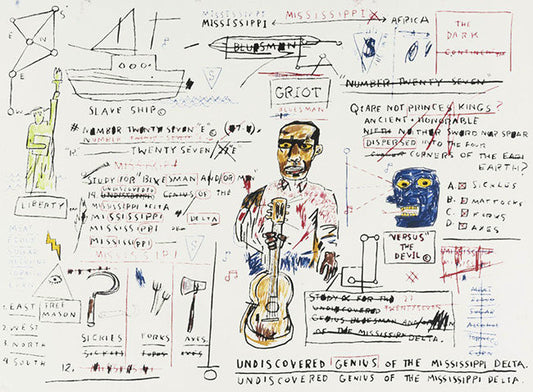 MISSISSIPPI
MISSISSIPPI
MISSISSIPPI
AFRICA
THE
DARK
CONTINENT
BLUESMAN
S
E
W
N
S
$
GRIOT
BLUESMAN
"NUMBER TWENTY SEVEN"
SLAVE SHIP©
# NUMBER TWENTY SEVEN "E"© (27.)
TWENTY SEVEN
STUDY FOR BLUESMAN AND/OR
UNDISCOVERED GENIUS OF THE
MISSISSIPPI DELTA
MISSISSIPPI
MISSISSIPPI
MISSISSIPPI
DELTA
MISSISSIPPI
LIBERTY
Q: ARE NOT PRINCES KINGS?
ANCIENT + HONORABLE
NIETH NEITHER SWORD NOR SPEAR
DISPERSED INTO THE FOUR
CORNERS OF THE
EARTH?
A SICKLES
B MATTOCKS
C FORKS
D AXES
"VERSUS"
THE
DEVIL©
1. EAST
FREE
MASON
2. WEST
3. NORTH
4. SOUTH
SICKLES
FORKS
AXES.
SICKLES
FORKS
AXES
12.
STUDY FOR THE
27
UNDISCOVERED
TWENTYSEVEN
GENIUS BLUESMAN AND/OR
OF THE MISSISSIPPI DELTA.
MEAT
FLOUR
SUGAR
ALCOHOL
TOBACCO
UNDISCOVERED GENIUS OF THE MISSISSIPPI DELTA.
UNDISCOVERED GENIUS OF THE MISSISSIPPI DELTA.